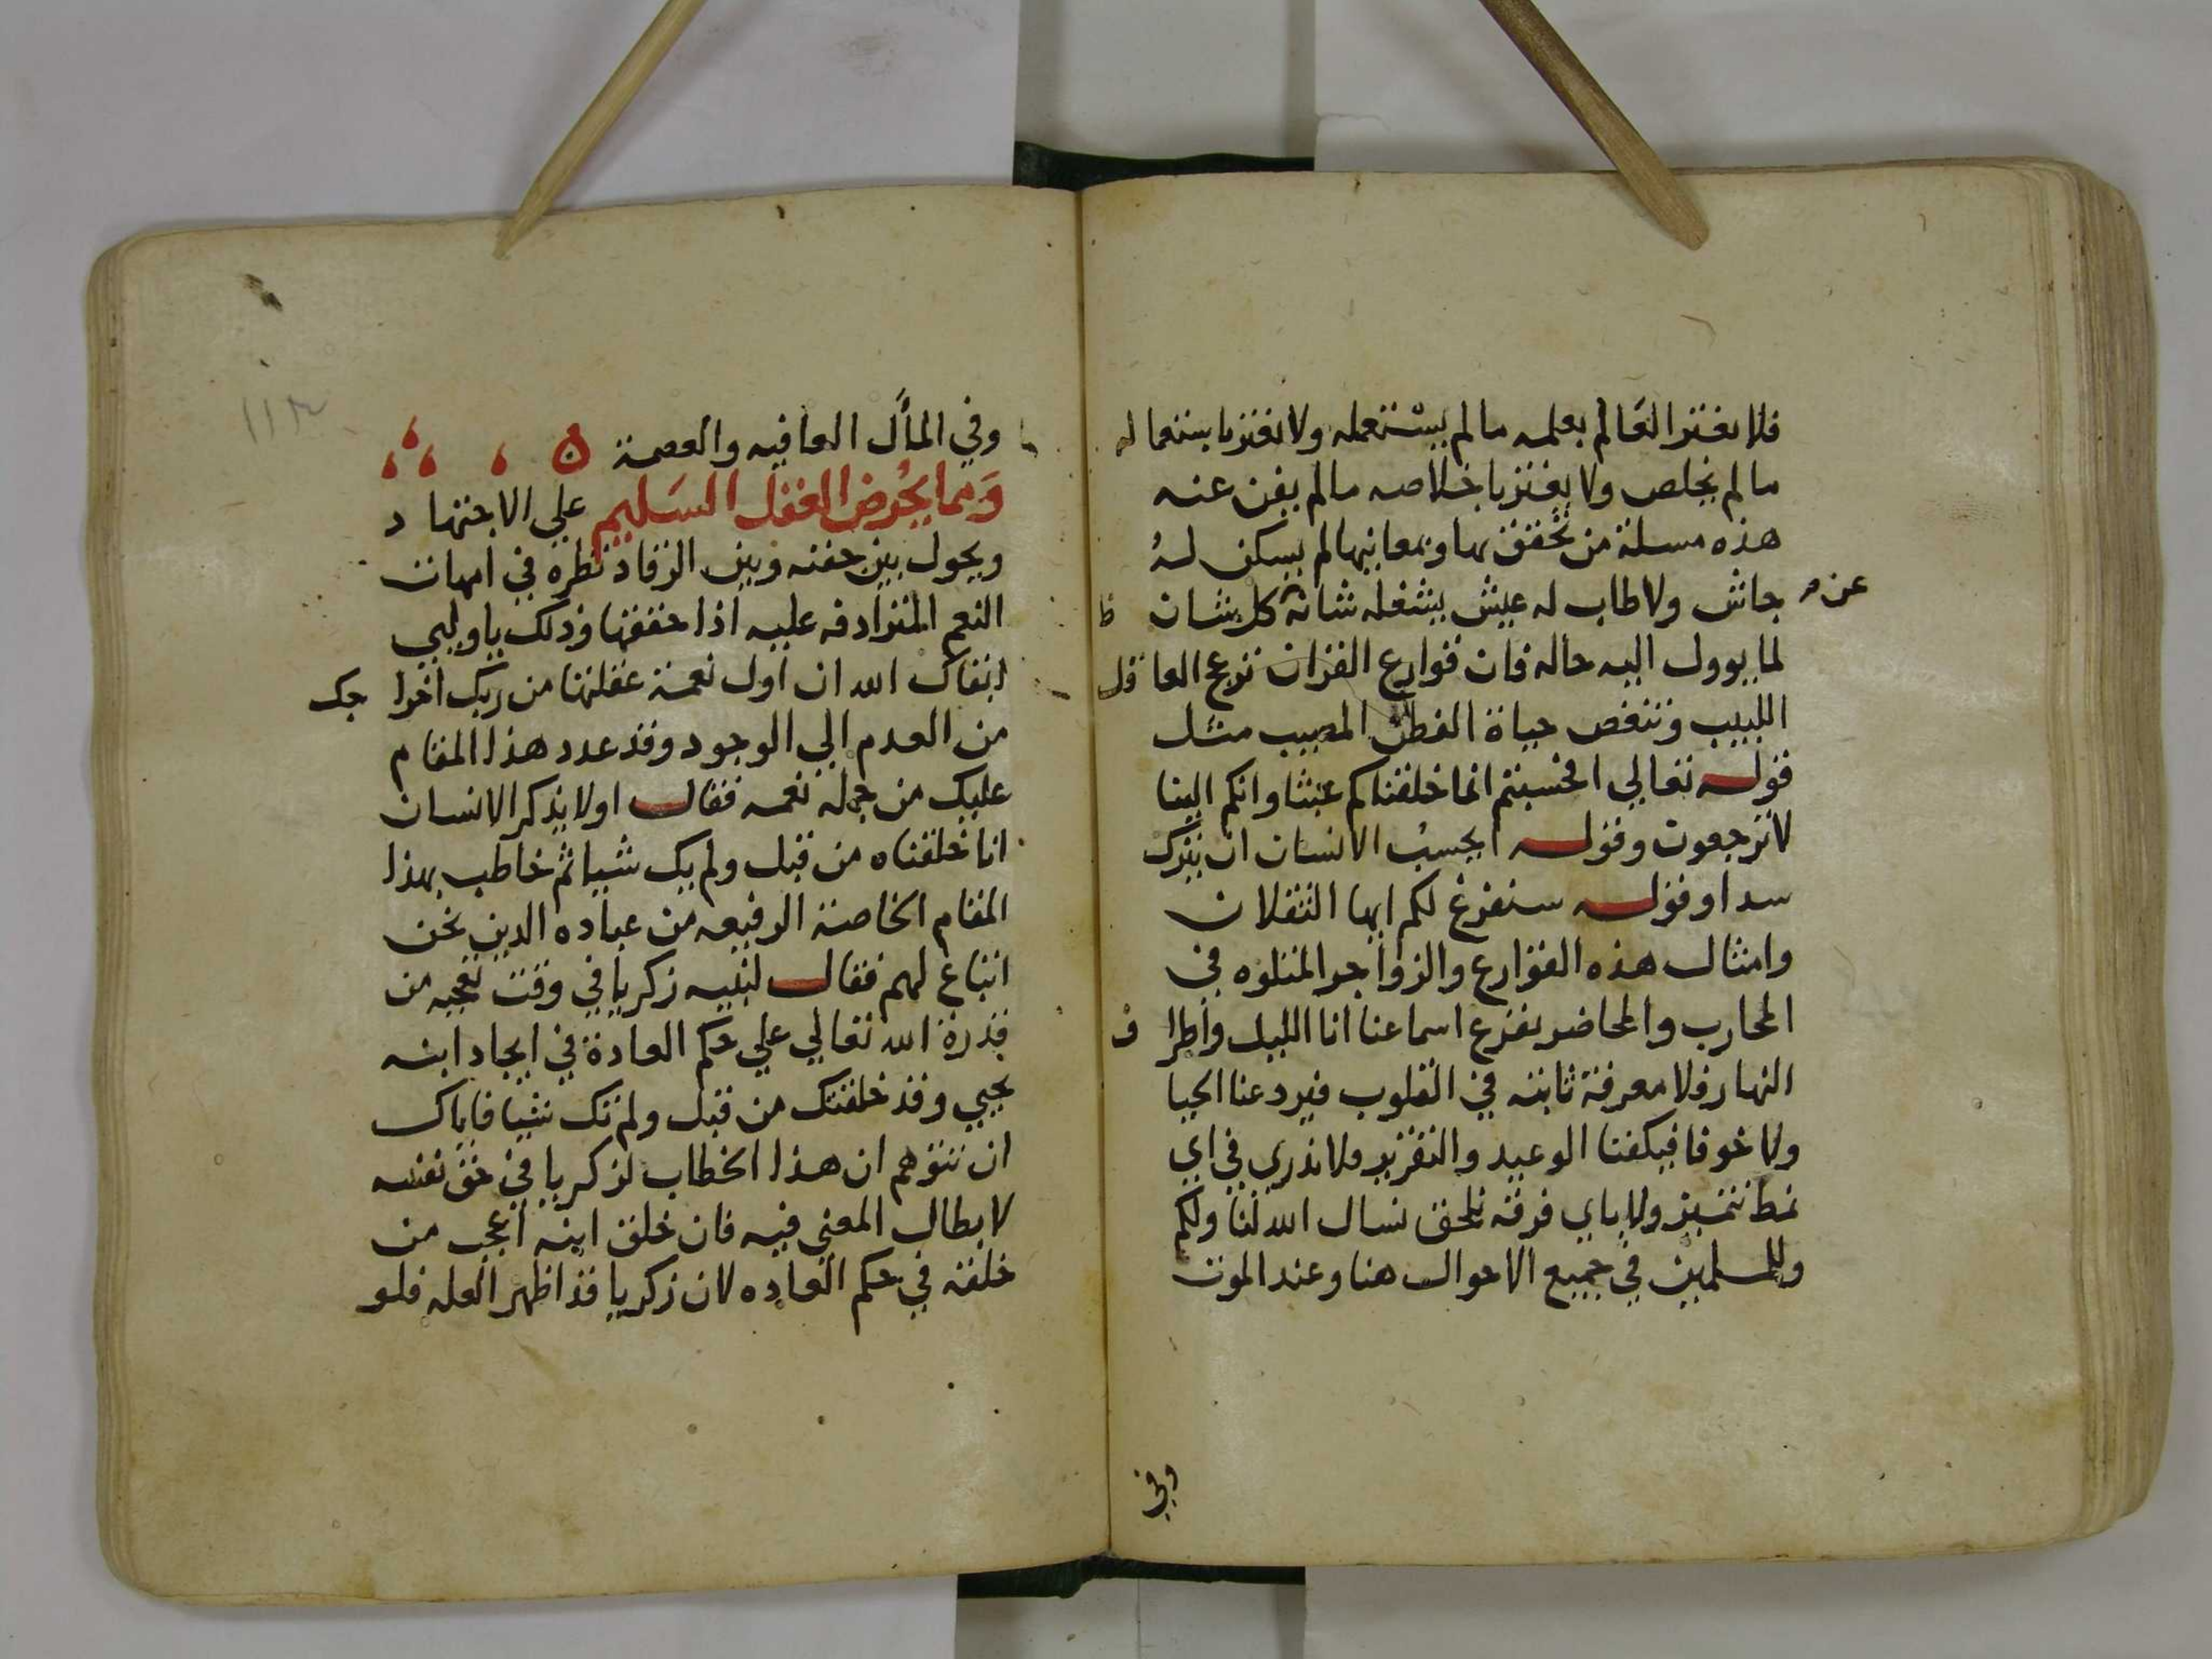 فلا يغتر العالم بعلمه مالم يستعمله ولا يغتر باستعماله
مالم يخلص ولا يغتر باخلاصه مالم يفن عنه
هذه مسلة من تحقق بها وبمعانيها لم يسكن له
جاش ولا طاب له عيش يشغله شانه كل شان
عن
ظ
لما يوول اليه حاله فان قوارع القران تزعج العاقل
اللبيب وتنغص حياة الفطن المصيب مثل
قوله تعالي افحسبتم انما خلقناكم عبثا وانكم الينا
لا ترجعون وقوله ايحسب الانسان ان يترك
سدا وقوله سنفرغ لكم ايها الثقلان
وامثال هذه القوارع والزواجر المتلوه في
المحارب والمحاضر تقرع اسماعنا انا الليل واطراف
النهار فلا معرفة ثابته في القلوب فيردعنا الحيا
ولا خوفا فيكفنا الوعيد والتقرير ولا ندري في اي
نمط نتميز ولا باي فرقه نلحق نسال الله لنا ولكم
وللمسلمين في جميع الاحوال هنا وعند الموت
وفي
وفي المأل العافيه والعصمة
١١٣
ومما يحرض العقل السليم علي الاجتهاد
ويحول بين جفنه وبين الرقاد نظره في امهات
النعم المترادفه عليه اذا حققها وذلك ياوليي
ابقاك الله ان اول نعمة عقلتها من ربك اخراجك
من العدم الي الوجود وقد عدد هذا المقام
عليك من جمله نعمه فقال اولا يذكر الانسان
انا خلقناه من قبل ولم يك شيا ثم خاطب بهذا
المقام الخاصة الرفيعه من عباده الدين نحن
اتباع لهم فقال لنبيه زكريا في وقت تعجبه من
قدرة الله تعالي علي حكم العادة في ايجاد ابنه
يحيي وقد خلقتك من قبل ولم تك شيا فاياك
ان تتوهم ان هذا الخطاب لزكريا في حق نفسه
لابطال المعني فيه فان خلق ابنه اعجب من
خلقه في حكم العاده لان زكريا قد اظهر العله فلو